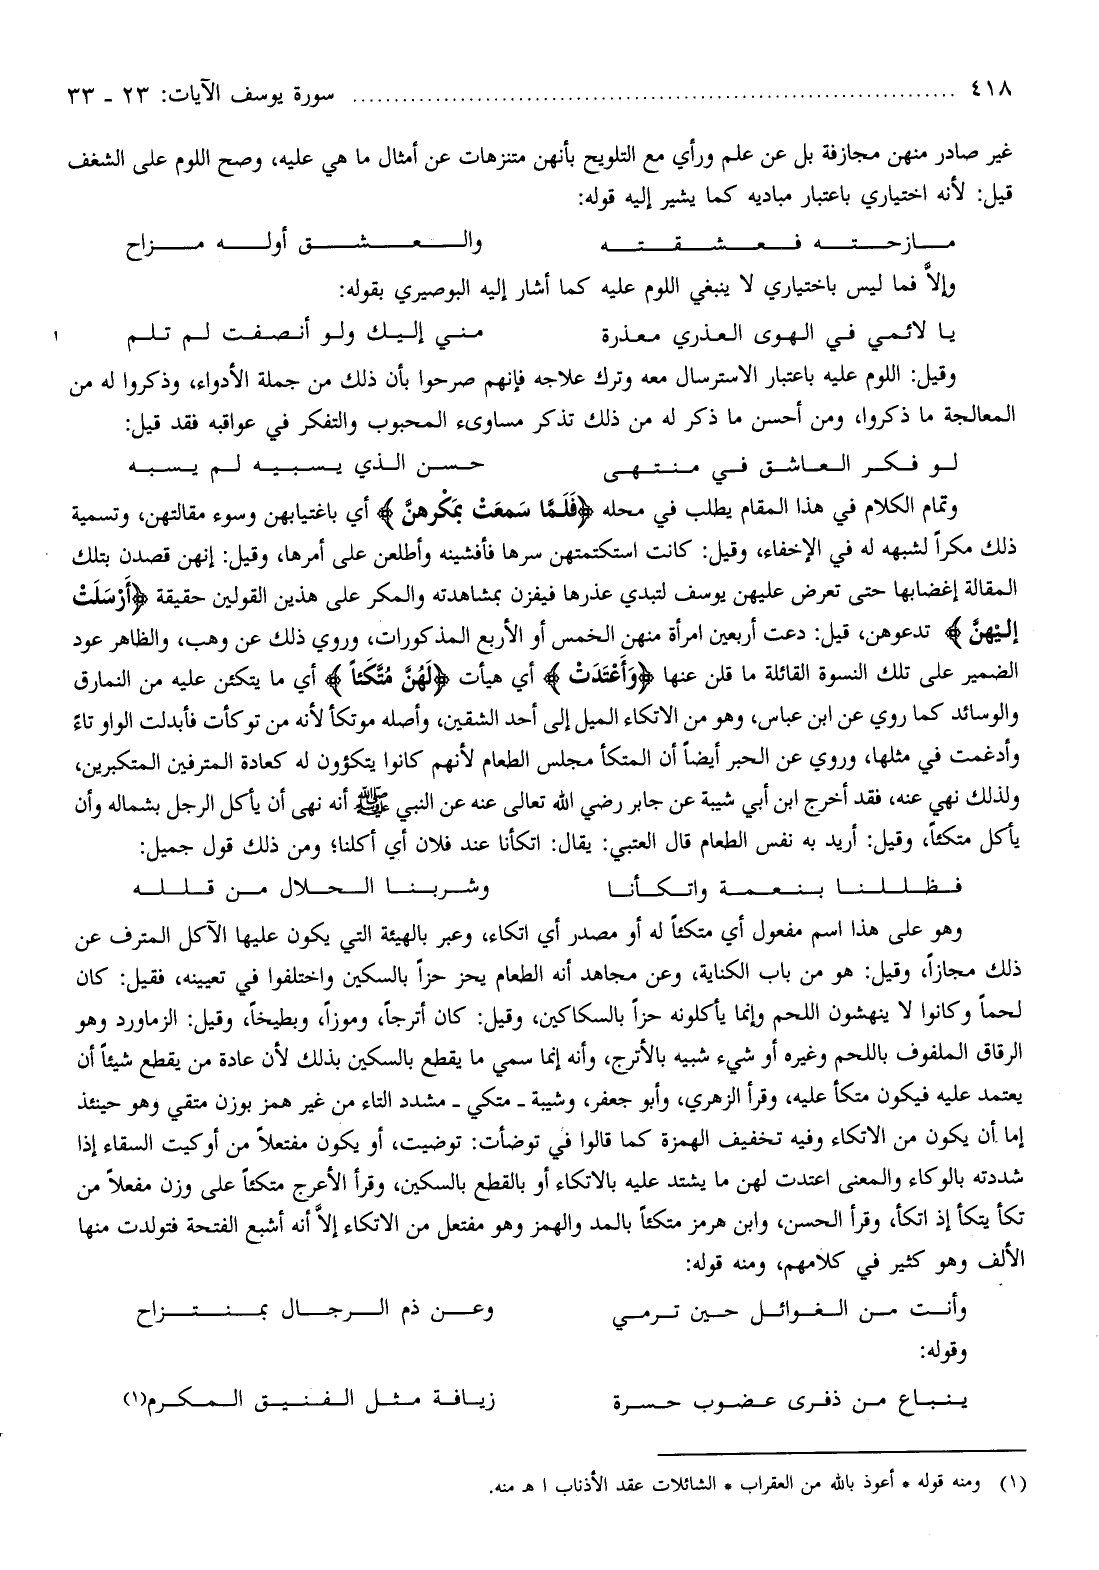 ٤١٨ ........................................ سورة يوسف الآيات: ٢٣ - ٣٣
غير صادر منهن مجازفة بل عن علم ورأي مع التلويح بأنهن متنزهات عن أمثال ما هي عليه، وصح اللوم على الشغف
قيل: لأنه اختياري باعتبار مباديه كما يشير إليه قوله:
مازحته فعشقته والعشق أوله مزاح
وإلاَّ فما ليس باختياري لا ينبغي اللوم عليه كما أشار إليه البوصيري بقوله:
يا لائمي في الهوى العذري معذرة مني إليك ولو أنصفت لم تلم
وقيل: اللوم عليه باعتبار الاسترسال معه وترك علاجه فإنهم صرحوا بأن ذلك من جملة الأدواء، وذكروا له من
المعالجة ما ذكروا، ومن أحسن ما ذكر له من ذلك تذكر مساوىء المحبوب والتفكر في عواقبه فقد قيل:
لو فكر العاشق في منتهى حسن الذي يسبيه لم يسبه
وتمام الكلام في هذا المقام يطلب في محله ﴿فَلَمَّا سَمعَتْ بمَكْرهنَّ﴾ أي باغتيابهن وسوء مقالتهن، وتسمية
ذلك مكراً لشبهه له في الإخفاء، وقيل: كانت استكتمتهن سرها فأفشينه وأطلعن على أمرها، وقيل: إنهن قصدن بتلك
المقالة إغضابها حتى تعرض عليهن يوسف لتبدي عذرها فيفزن بمشاهدته والمكر على هذين القولين حقيقة ﴿أَرْسَلَتْ
إلَيْهنَّ﴾ تدعوهن، قيل: دعت أربعين امرأة منهن الخمس أو الأربع المذكورات، وروي ذلك عن وهب، والظاهر عود
الضمير على تلك النسوة القائلة ما قلن عنها ﴿وَأَعْتَدَتْ﴾ أي هيأت ﴿لَهُنَّ مُتَّكَئاً﴾ أي ما يتكئن عليه من النمارق
والوسائد كما روي عن ابن عباس، وهو من الاتكاء الميل إلى أحد الشقين، وأصله موتكأ لأنه من توكأت فأبدلت الواو تاءً
وأدغمت في مثلها، وروي عن الحبر أيضاً أن المتكأ مجلس الطعام لأنهم كانوا يتكؤون له كعادة المترفين المتكبرين،
ولذلك نهي عنه، فقد أخرج ابن أبي شيبة عن جابر رضي الله تعالى عنه عن النبي ﷺ أنه نهى أن يأكل الرجل بشماله وأن
يأكل متكئاً، وقيل: أريد به نفس الطعام قال العتبي: يقال: اتكأنا عند فلان أي أكلنا؛ ومن ذلك قول جميل:
فظللنا بنعمة واتكأنا وشربنا الحلال من قلله
وهو على هذا اسم مفعول أي متكئاً له أو مصدر أي اتكاء، وعبر بالهيئة التي يكون عليها الآكل المترف عن
ذلك مجازاً، وقيل: هو من باب الكناية، وعن مجاهد أنه الطعام يحز حزاً بالسكين واختلفوا في تعيينه، فقيل: كان
لحماً وكانوا لا ينهشون اللحم وإنما يأكلونه حزاً بالسكاكين، وقيل: كان أترجاً، وموزاً، وبطيخاً، وقيل: الزماورد وهو
الرقاق الملفوف باللحم وغيره أو شيء شبيه بالأترج، وأنه إنما سمي ما يقطع بالسكين بذلك لأن عادة من يقطع شيئاً أن
يعتمد عليه فيكون متكأ عليه، وقرأ الزهري، وأبو جعفر، وشيبة ـ متكي ـ مشدد التاء من غير همز بوزن متقي وهو حينئذ
إما أن يكون من الاتكاء وفيه تخفيف الهمزة كما قالوا في توضأت: توضيت، أو يكون مفتعلاً من أوكيت السقاء إذا
شددته بالوكاء والمعنى اعتدت لهن ما يشتد عليه بالاتكاء أو بالقطع بالسكين، وقرأ الأعرج متكئاً على وزن مفعلاً من
تكأ يتكأ إذ اتكأ، وقرأ الحسن، وابن هرمز متكئاً بالمد والهمز وهو مفتعل من الاتكاء إلاَّ أنه أشبع الفتحة فتولدت منها
الألف وهو كثير في كلامهم، ومنه قوله:
وأنت من الغوائل حين ترمي وعن ذم الرجال بمنتزاح
وقوله:
ينباع من ذفرى عضوب حسرة زيافة مثل الفنيق المكرم(١)
(١) ومنه قوله * أعوذ بالله من العقراب * الشائلات عقد الأذناب ا هـ منه.